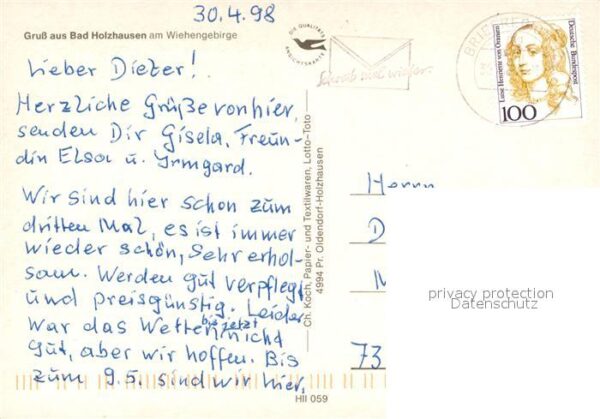 30.4.98
Gruß aus Bad Holzhausen am Wiehengebirge
Lieber Dieter!
Herzliche Grüße von hier
senden Dir Gisela, Freun-
din Elsa u. Irmgard.
Wir sind hier schon zum
dritten Mal, es ist immer
wieder schön, Sehr erhol-
sam. Werden gut verpflegt
und preisgünstig. Leider
war das Wetter bis jetzt nicht
gut, aber wir hoffen. Bis
zum 9.5. sind wir hier,
DIE QUALITÄTS
ANSICHTSKARTE
Schreib mal wieder.
Luise Henriette von Oranien
Deutsche Bundespost
100
Ch. Koch, Papier- und Textilwaren, Lotto-Toto
4994 Pr. Oldendorf-Holzhausen
Herrn
D
M
73
privacy protection
Datenschutz
HII 059